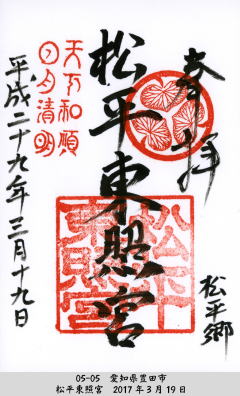 奉拝
松平郷
松平東照宮
松平
東照宮
天下和順
日月清明
平成二十九年三月十九日
05-05 愛知県豊田市
松平東照宮 2017年3月19日